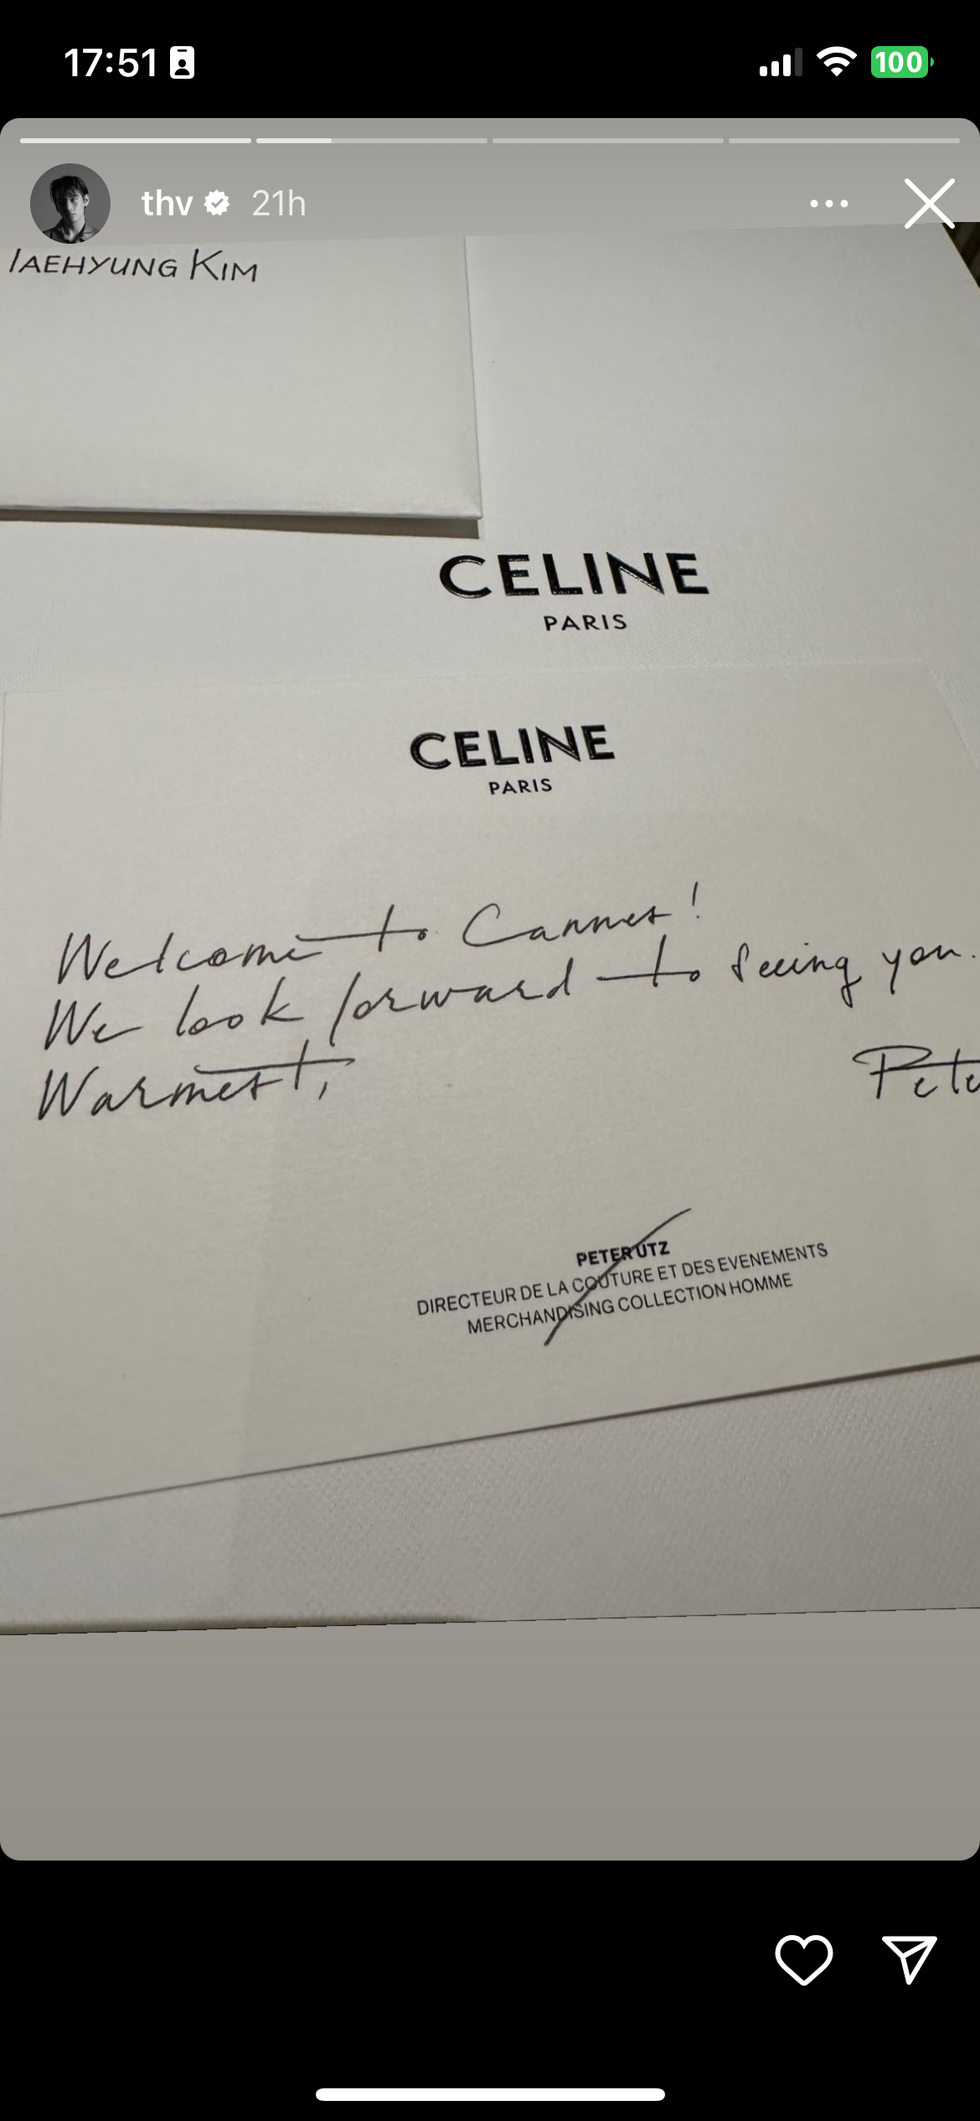 17:51
100
thv 21h
TAEHYUNG KIM
CELINE
PARIS
CELINE
PARIS
Welcome to Cannes!
We look forward to seeing you.
Warmest,
Pete
PETER UTZ
DIRECTEUR DE LA COUTURE ET DES EVENEMENTS
MERCHANDISING COLLECTION HOMME